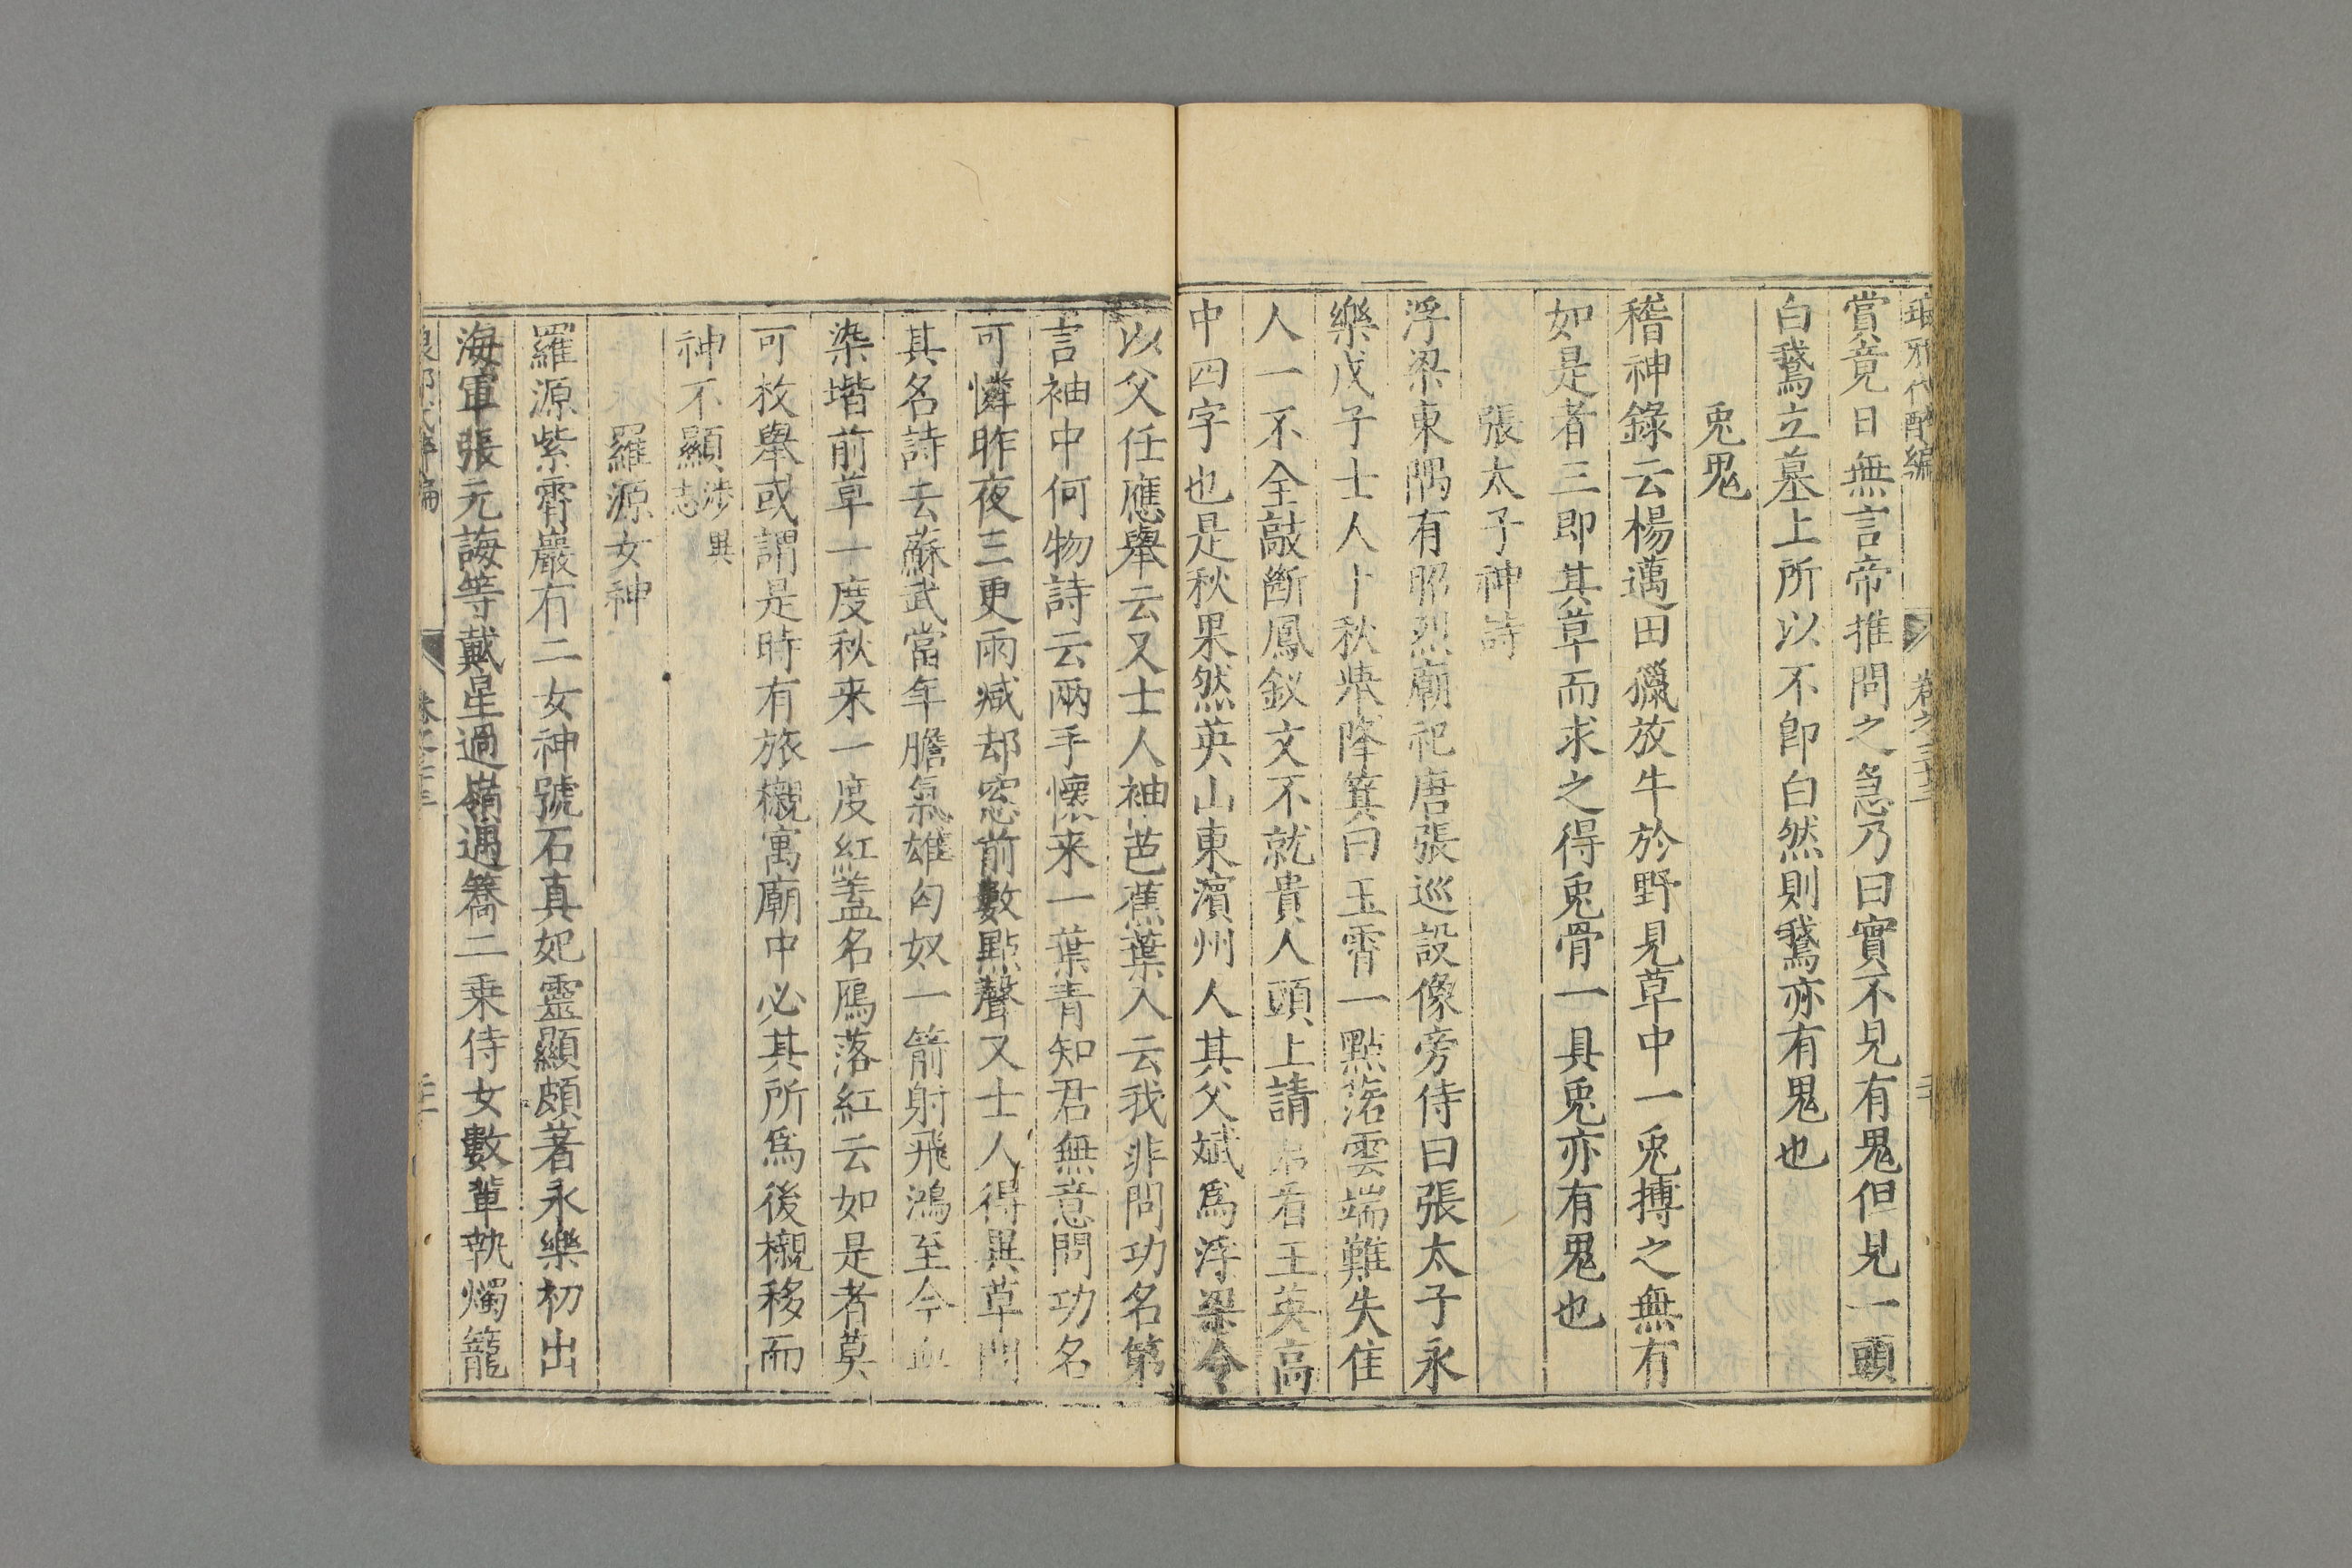 瑯邪代醉編 卷之三十三
賞竟日無言帝推問之急乃曰實不見有鬼但見一頭
白鵞立墓上所以不卽白然則鵞亦有鬼也
兎鬼
稽神錄云楊邁田獵放牛於野見草中一兎搏之無有
如是者三即其草而求之得兎骨一具兎亦有鬼也
張太子神詩
浮梁東隅有昭烈廟祀唐張巡設像旁侍曰張太子永
樂戊子士人卜秋𠔏降箕曰玉霄一點落雲端難失隹
人一不全敲斷鳳釵文不就貴人頭上請君看王英高
中四字也是秋果然英山東濱州人其父斌爲浮梁令
以父任應舉云又士人袖芭蕉葉入云我非問功名第
言袖中何物詩云兩手懷来一葉青知君無意問功名
可憐昨夜三更雨减却窓前數點聲又士人得異草問
其名詩云蘇武當年膽氣雄匈奴一箭射飛鴻至今血
染堦前草一度秋来一度紅蓋名鴈落紅云如是者莫
可枚舉或謂是時有旅櫬寓廟中必其所爲後櫬移而
神不顯涉異志
羅源女神
羅源紫霄巖有二女神號石真妃靈顯頗著永樂初出
海軍張元誨等戴星過嶺遇籌二乗侍女數輩執燭籠